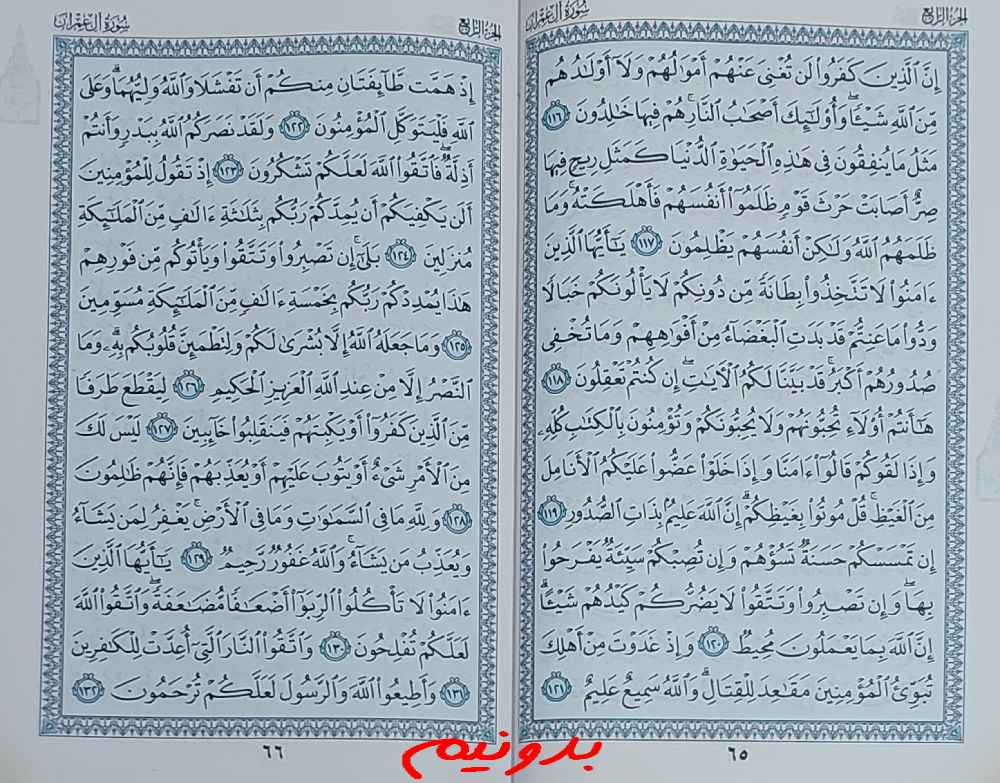 الجزء الرابع
سورة آل عمران
إِنَّ ٱلَّذِينَ كَفَرُوا۟ لَن تُغْنِىَ عَنْهُمْ أَمْوَٰلُهُمْ وَلَآ أَوْلَٰدُهُم
مِّنَ ٱللَّهِ شَيْـًٔا ۖ وَأُو۟لَٰٓئِكَ أَصْحَٰبُ ٱلنَّارِ ۚ هُمْ فِيهَا خَٰلِدُونَ ١١٦
مَثَلُ مَا يُنفِقُونَ فِى هَٰذِهِ ٱلْحَيَوٰةِ ٱلدُّنْيَا كَمَثَلِ رِيحٍ فِيهَا
صِرٌّ أَصَابَتْ حَرْثَ قَوْمٍ ظَلَمُوٓا۟ أَنفُسَهُمْ فَأَهْلَكَتْهُ ۚ وَمَا
ظَلَمَهُمُ ٱللَّهُ وَلَٰكِنْ أَنفُسَهُمْ يَظْلِمُونَ ١١٧ يَٰٓأَيُّهَا ٱلَّذِينَ
ءَامَنُوا۟ لَا تَتَّخِذُوا۟ بِطَانَةً مِّن دُونِكُمْ لَا يَأْلُونَكُمْ خَبَالًا
وَدُّوا۟ مَا عَنِتُّمْ قَدْ بَدَتِ ٱلْبَغْضَآءُ مِنْ أَفْوَٰهِهِمْ وَمَا تُخْفِى
صُدُورُهُمْ أَكْبَرُ ۚ قَدْ بَيَّنَّا لَكُمُ ٱلْـَٔايَٰتِ ۖ إِن كُنتُمْ تَعْقِلُونَ ١١٨
هَٰٓأَنتُمْ أُو۟لَآءِ تُحِبُّونَهُمْ وَلَا يُحِبُّونَكُمْ وَتُؤْمِنُونَ بِٱلْكِتَٰبِ كُلِّهِۦ
وَإِذَا لَقُوكُمْ قَالُوٓا۟ ءَامَنَّا وَإِذَا خَلَوْا۟ عَضُّوا۟ عَلَيْكُمُ ٱلْأَنَامِلَ
مِنَ ٱلْغَيْظِ ۚ قُلْ مُوتُوا۟ بِغَيْظِكُمْ ۗ إِنَّ ٱللَّهَ عَلِيمٌۢ بِذَاتِ ٱلصُّدُورِ ١١٩
إِن تَمْسَسْكُمْ حَسَنَةٌ تَسُؤْهُمْ وَإِن تُصِبْكُمْ سَيِّئَةٌ يَفْرَحُوا۟
بِهَا ۖ وَإِن تَصْبِرُوا۟ وَتَتَّقُوا۟ لَا يَضُرُّكُمْ كَيْدُهُمْ شَيْـًٔا ۗ
إِنَّ ٱللَّهَ بِمَا يَعْمَلُونَ مُحِيطٌ ١٢٠ وَإِذْ غَدَوْتَ مِنْ أَهْلِكَ
تُبَوِّئُ ٱلْمُؤْمِنِينَ مَقَٰعِدَ لِلْقِتَالِ ۗ وَٱللَّهُ سَمِيعٌ عَلِيمٌ ١٢١
٦٥
الجزء الرابع
سورة آل عمران
إِذْ هَمَّت طَّآئِفَتَانِ مِنكُمْ أَن تَفْشَلَا وَٱللَّهُ وَلِيُّهُمَا ۗ وَعَلَى
ٱللَّهِ فَلْيَتَوَكَّلِ ٱلْمُؤْمِنُونَ ١٢٢ وَلَقَدْ نَصَرَكُمُ ٱللَّهُ بِبَدْرٍ وَأَنتُمْ
أَذِلَّةٌ ۖ فَٱتَّقُوا۟ ٱللَّهَ لَعَلَّكُمْ تَشْكُرُونَ ١٢٣ إِذْ تَقُولُ لِلْمُؤْمِنِينَ
أَلَن يَكْفِيَكُمْ أَن يُمِدَّكُمْ رَبُّكُم بِثَلَٰثَةِ ءَالَٰفٍ مِّنَ ٱلْمَلَٰٓئِكَةِ
مُنزَلِينَ ١٢٤ بَلَىٰٓ ۚ إِن تَصْبِرُوا۟ وَتَتَّقُوا۟ وَيَأْتُوكُم مِّن فَوْرِهِمْ
هَٰذَا يُمْدِدْكُمْ رَبُّكُم بِخَمْسَةِ ءَالَٰفٍ مِّنَ ٱلْمَلَٰٓئِكَةِ مُسَوِّمِينَ
١٢٥ وَمَا جَعَلَهُ ٱللَّهُ إِلَّا بُشْرَىٰ لَكُمْ وَلِتَطْمَئِنَّ قُلُوبُكُم بِهِۦ ۗ وَمَا
ٱلنَّصْرُ إِلَّا مِنْ عِندِ ٱللَّهِ ٱلْعَزِيزِ ٱلْحَكِيمِ ١٢٦ لِيَقْطَعَ طَرَفًا
مِّنَ ٱلَّذِينَ كَفَرُوٓا۟ أَوْ يَكْبِتَهُمْ فَيَنقَلِبُوا۟ خَآئِبِينَ ١٢٧ لَيْسَ لَكَ
مِنَ ٱلْأَمْرِ شَىْءٌ أَوْ يَتُوبَ عَلَيْهِمْ أَوْ يُعَذِّبَهُمْ فَإِنَّهُمْ ظَٰلِمُونَ
١٢٨ وَلِلَّهِ مَا فِى ٱلسَّمَٰوَٰتِ وَمَا فِى ٱلْأَرْضِ ۚ يَغْفِرُ لِمَن يَشَآءُ
وَيُعَذِّبُ مَن يَشَآءُ ۚ وَٱللَّهُ غَفُورٌ رَّحِيمٌ ١٢٩ يَٰٓأَيُّهَا ٱلَّذِينَ
ءَامَنُوا۟ لَا تَأْكُلُوا۟ ٱلرِّبَوٰٓا۟ أَضْعَٰفًا مُّضَٰعَفَةً ۖ وَٱتَّقُوا۟ ٱللَّهَ
لَعَلَّكُمْ تُفْلِحُونَ ١٣٠ وَٱتَّقُوا۟ ٱلنَّارَ ٱلَّتِىٓ أُعِدَّتْ لِلْكَٰفِرِينَ
١٣١ وَأَطِيعُوا۟ ٱللَّهَ وَٱلرَّسُولَ لَعَلَّكُمْ تُرْحَمُونَ ١٣٢
٦٦
بدونیم